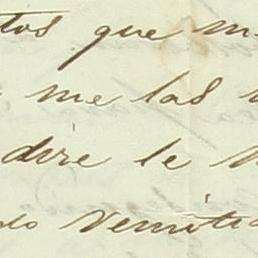 tos que m
me las
dire le
do remitid